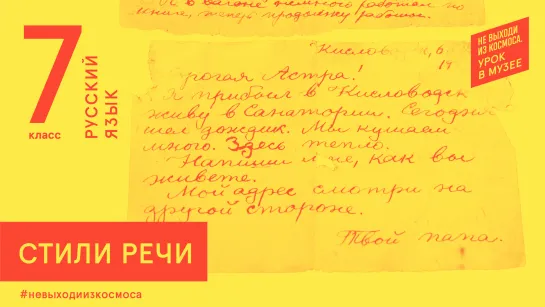 7
класс
РУССКИЙ
ЯЗЫК
НЕ ВЫХОДИ
ИЗ КОСМОСА.
УРОК
В МУЗЕЕ
работал
книге, продолжу работать.
Кисловодск, 6
Дорогая Астра!
Я прибыл в Кисловодск
живу в Санатории. Сегодня
шел дождик. Мы кушаем
много. Здесь тепло.
Напиши мне, как вы
живете.
Мой адрес смотри на
другой стороне.
Твой папа.
СТИЛИ РЕЧИ
#невыходиизкосмоса